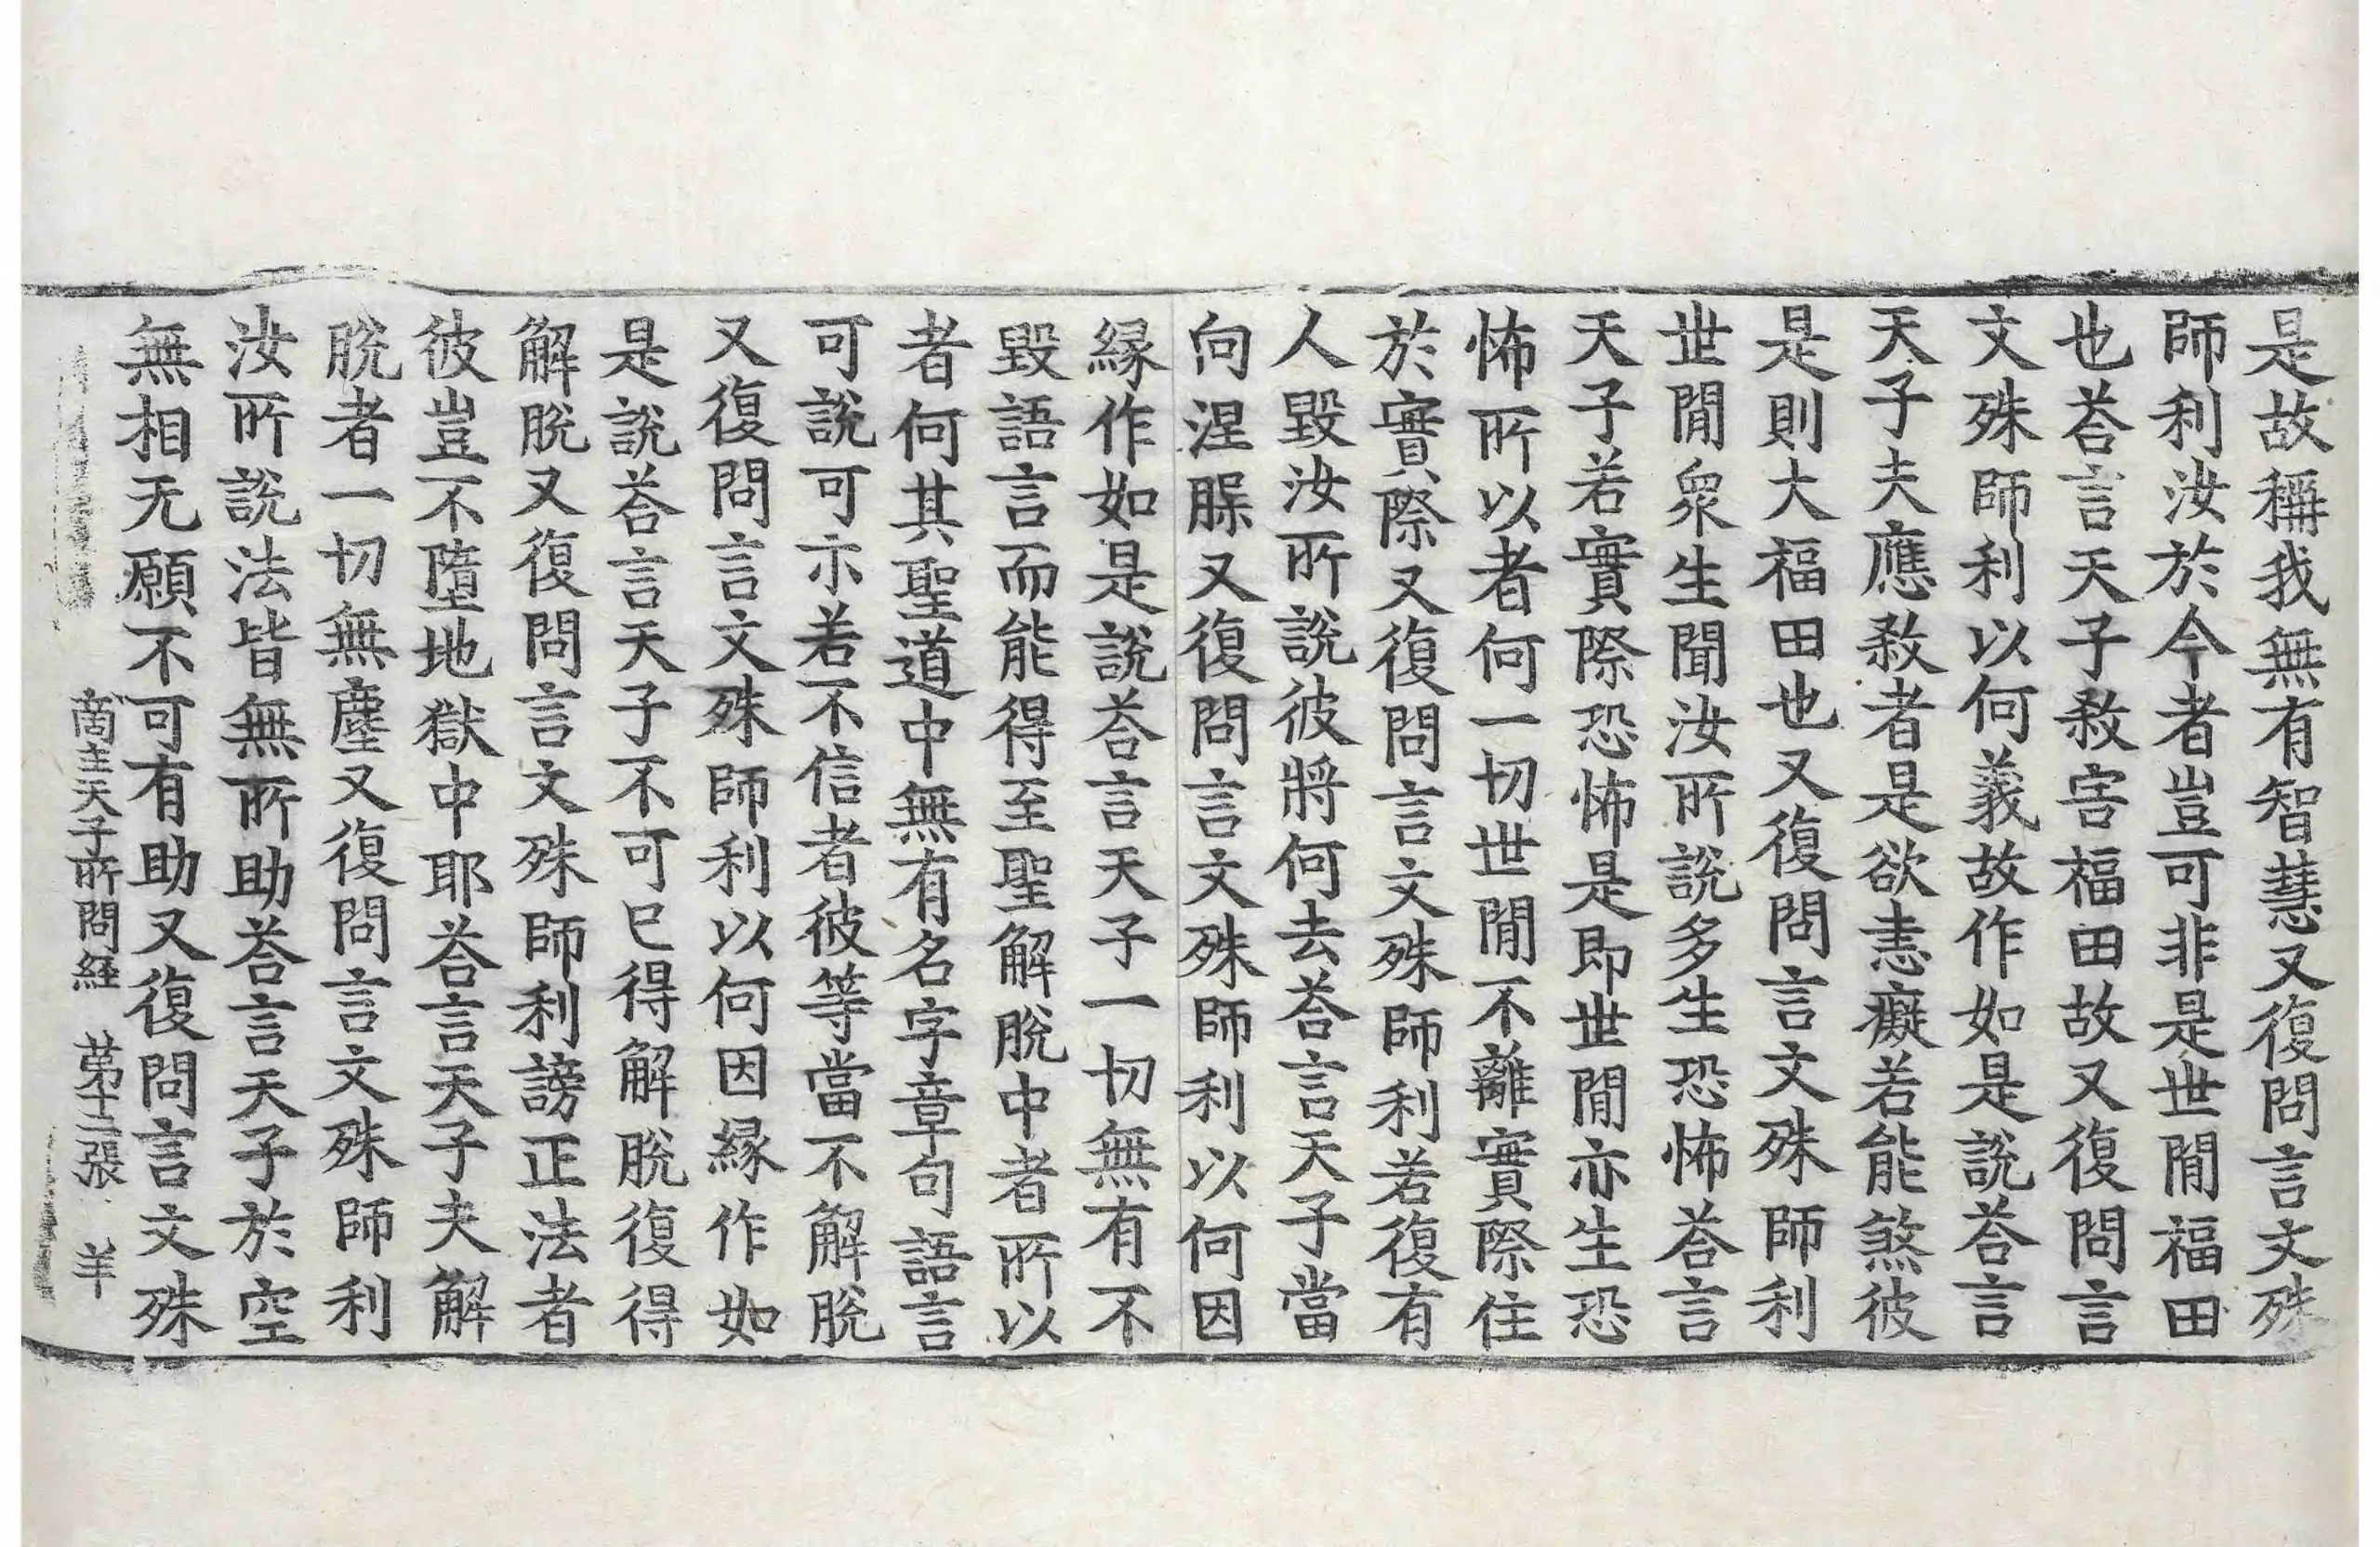 是故稱我無有智慧又復問言文殊
師利汝於今者豈可非是世閒福田
也荅言天子敎害福田故又復問言
文殊師利以何義故作如是說荅言
天子夫應敎者是欲恚癡若能煞彼
是則大福田也又復問言文殊師利
世閒衆生聞汝所說多生恐怖荅言
天子若實際恐怖是即世閒亦生恐
怖所以者何一切世閒不離實際住
於實際又復問言文殊師利若復有
人毀汝所說彼將何去荅言天子當
向涅槃又復問言文殊師利以何因
緣作如是說荅言天子一切無有不
毀語言而能得至聖解脫中者所以
者何其聖道中無有名字章句語言
可說可示若不信者彼等當不解脫
又復問言文殊師利以何因緣作如
是說荅言天子不可已得解脫復得
解脫又復問言文殊師利謗正法者
彼豈不墮地獄中耶荅言天子夫解
脫者一切無塵又復問言文殊師利
汝所說法皆無所助荅言天子於空
無相无願不可有助又復問言文殊
商主天子所問経 苐十二張 羊